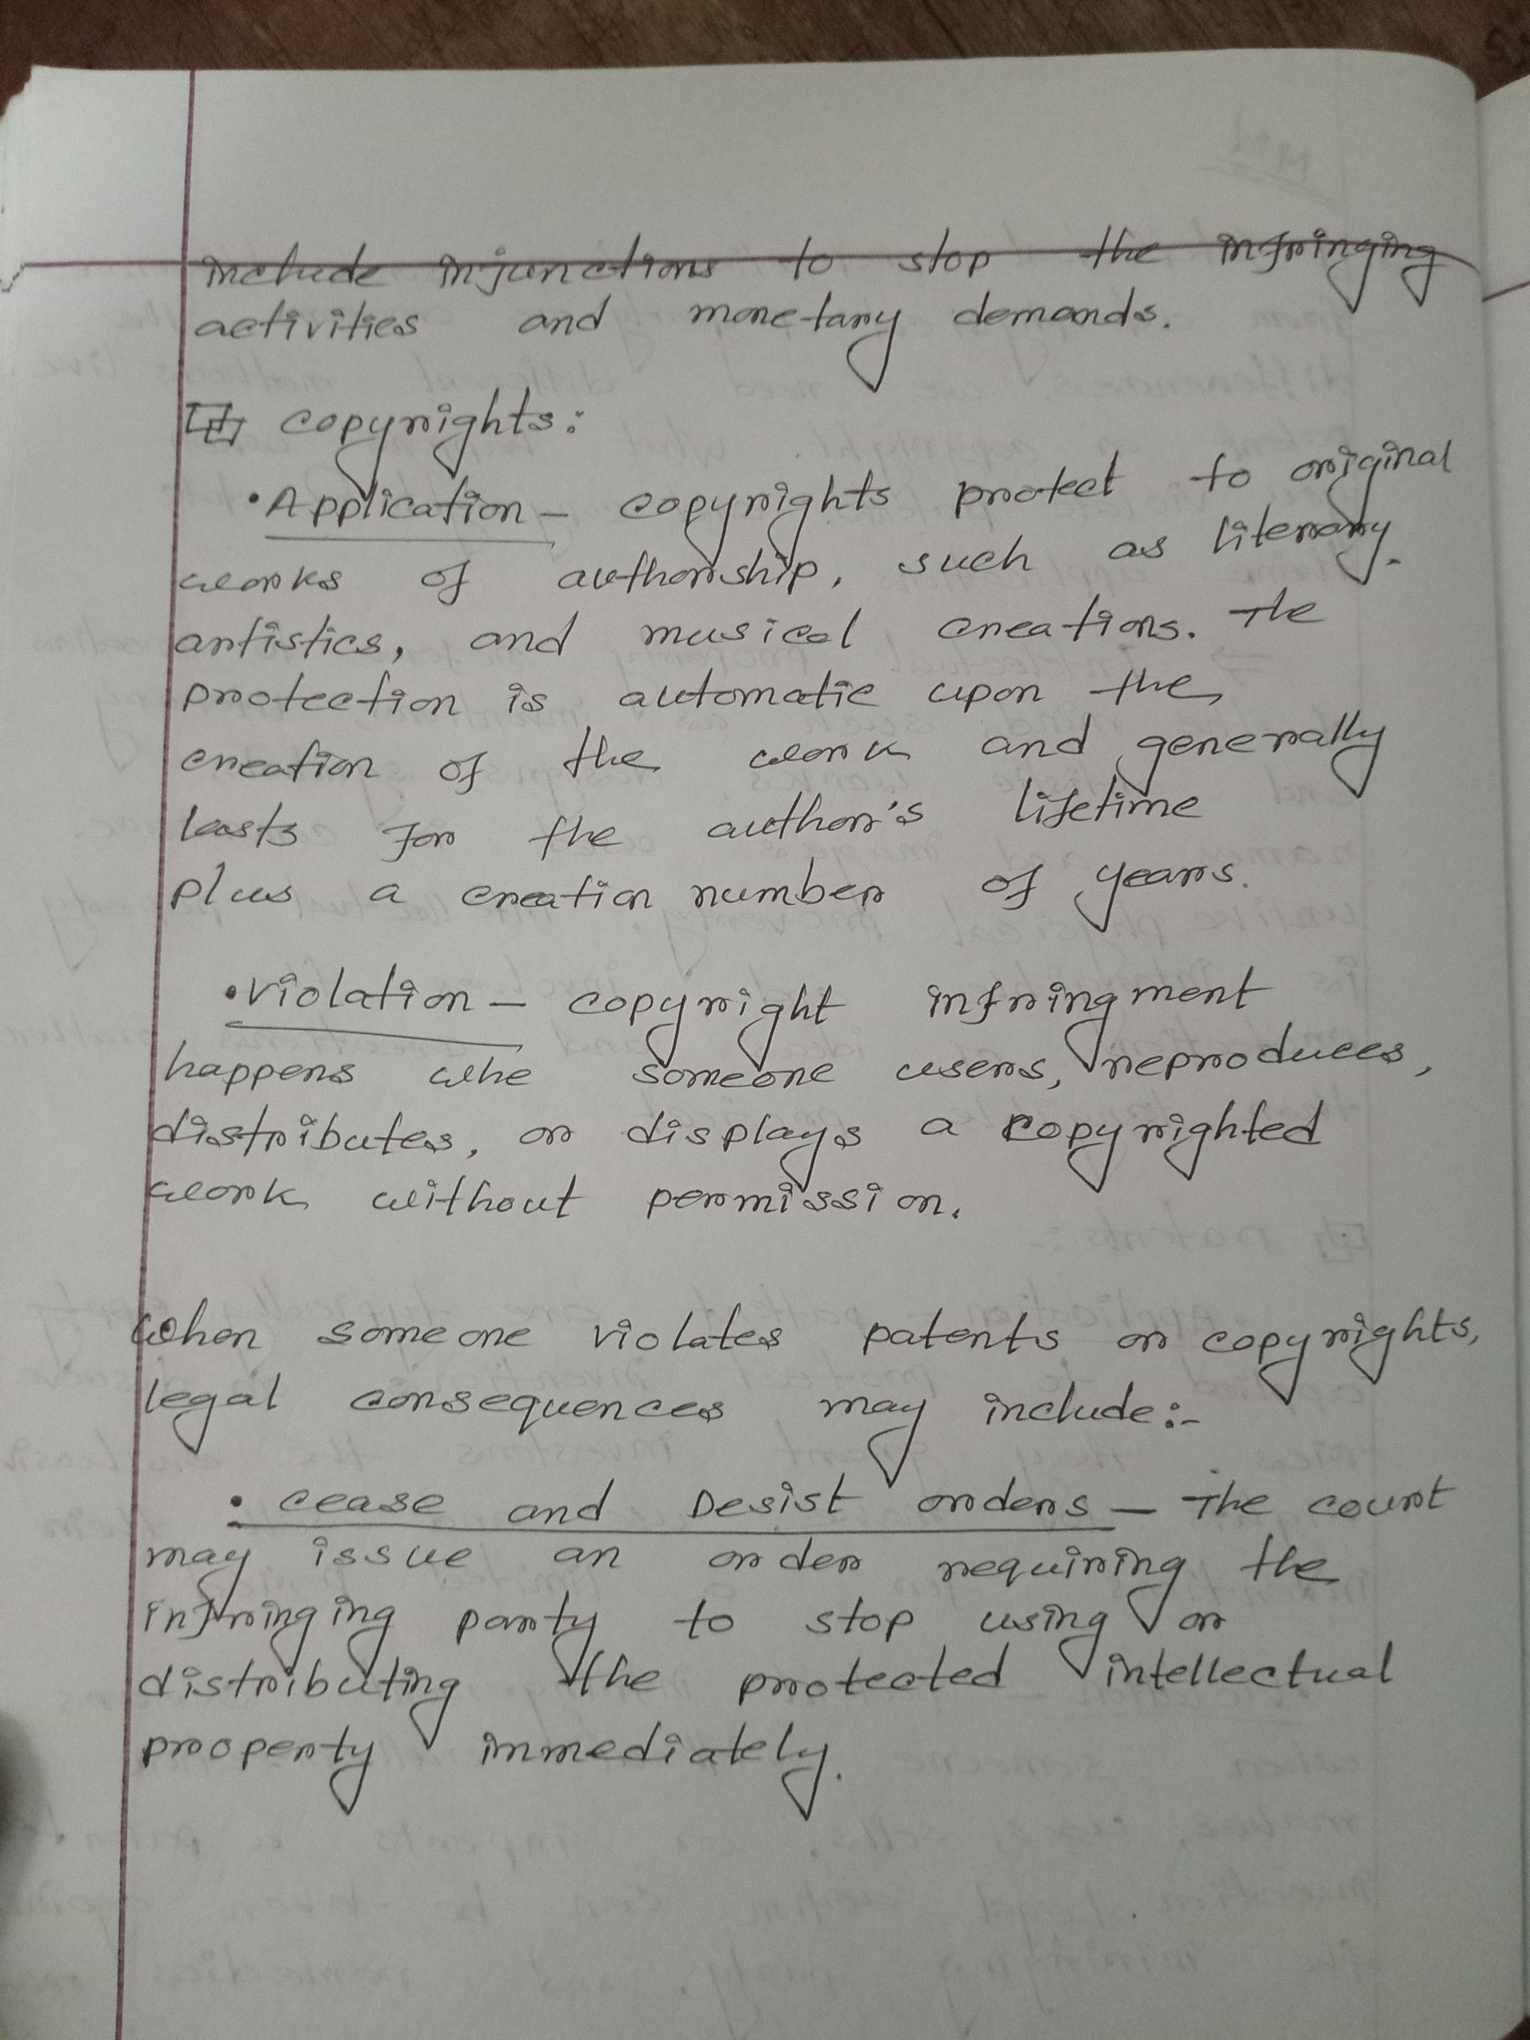 include injunctions to stop the infringing
activities and monetary demands.
copyrights:
• Application – copyrights protect to original
works of authorship, such as literary.
artistics, and musical creations. The
protection is automatic upon the
creation of the work and generally
lasts for the author's lifetime
plus a creation number of years.
• violation – copyright infringment
happens whe someone users, reproduces,
distributes, or displays a copyrighted
work without permission.
When someone violates patents or copyrights,
legal consequences may include:-
• cease and Desist orders – The court
may issue an order requiring the
infringing party to stop using or
distributing the protected intellectual
property immediately.